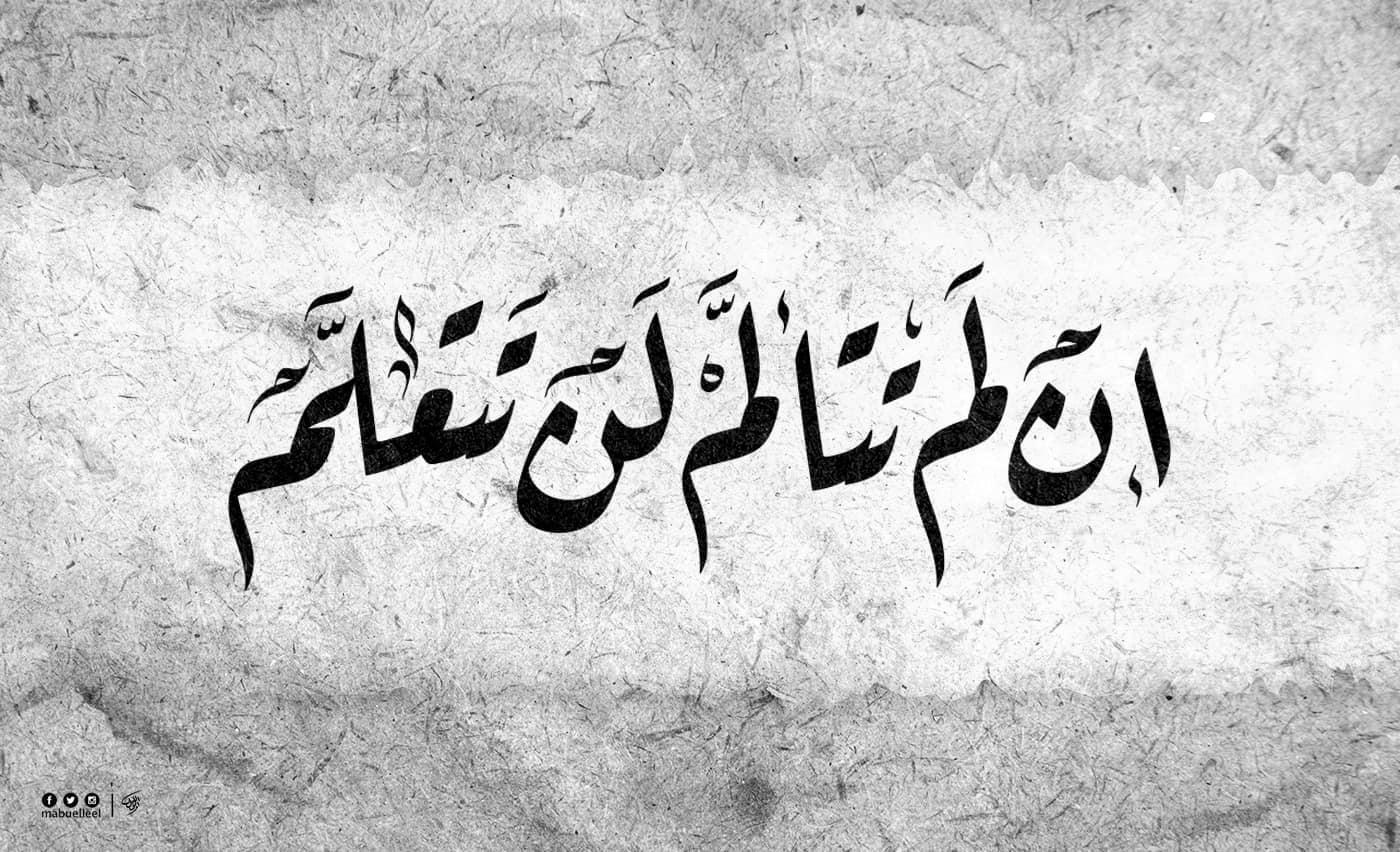 ان لم تتألم لن تتعلم
mabuelleel